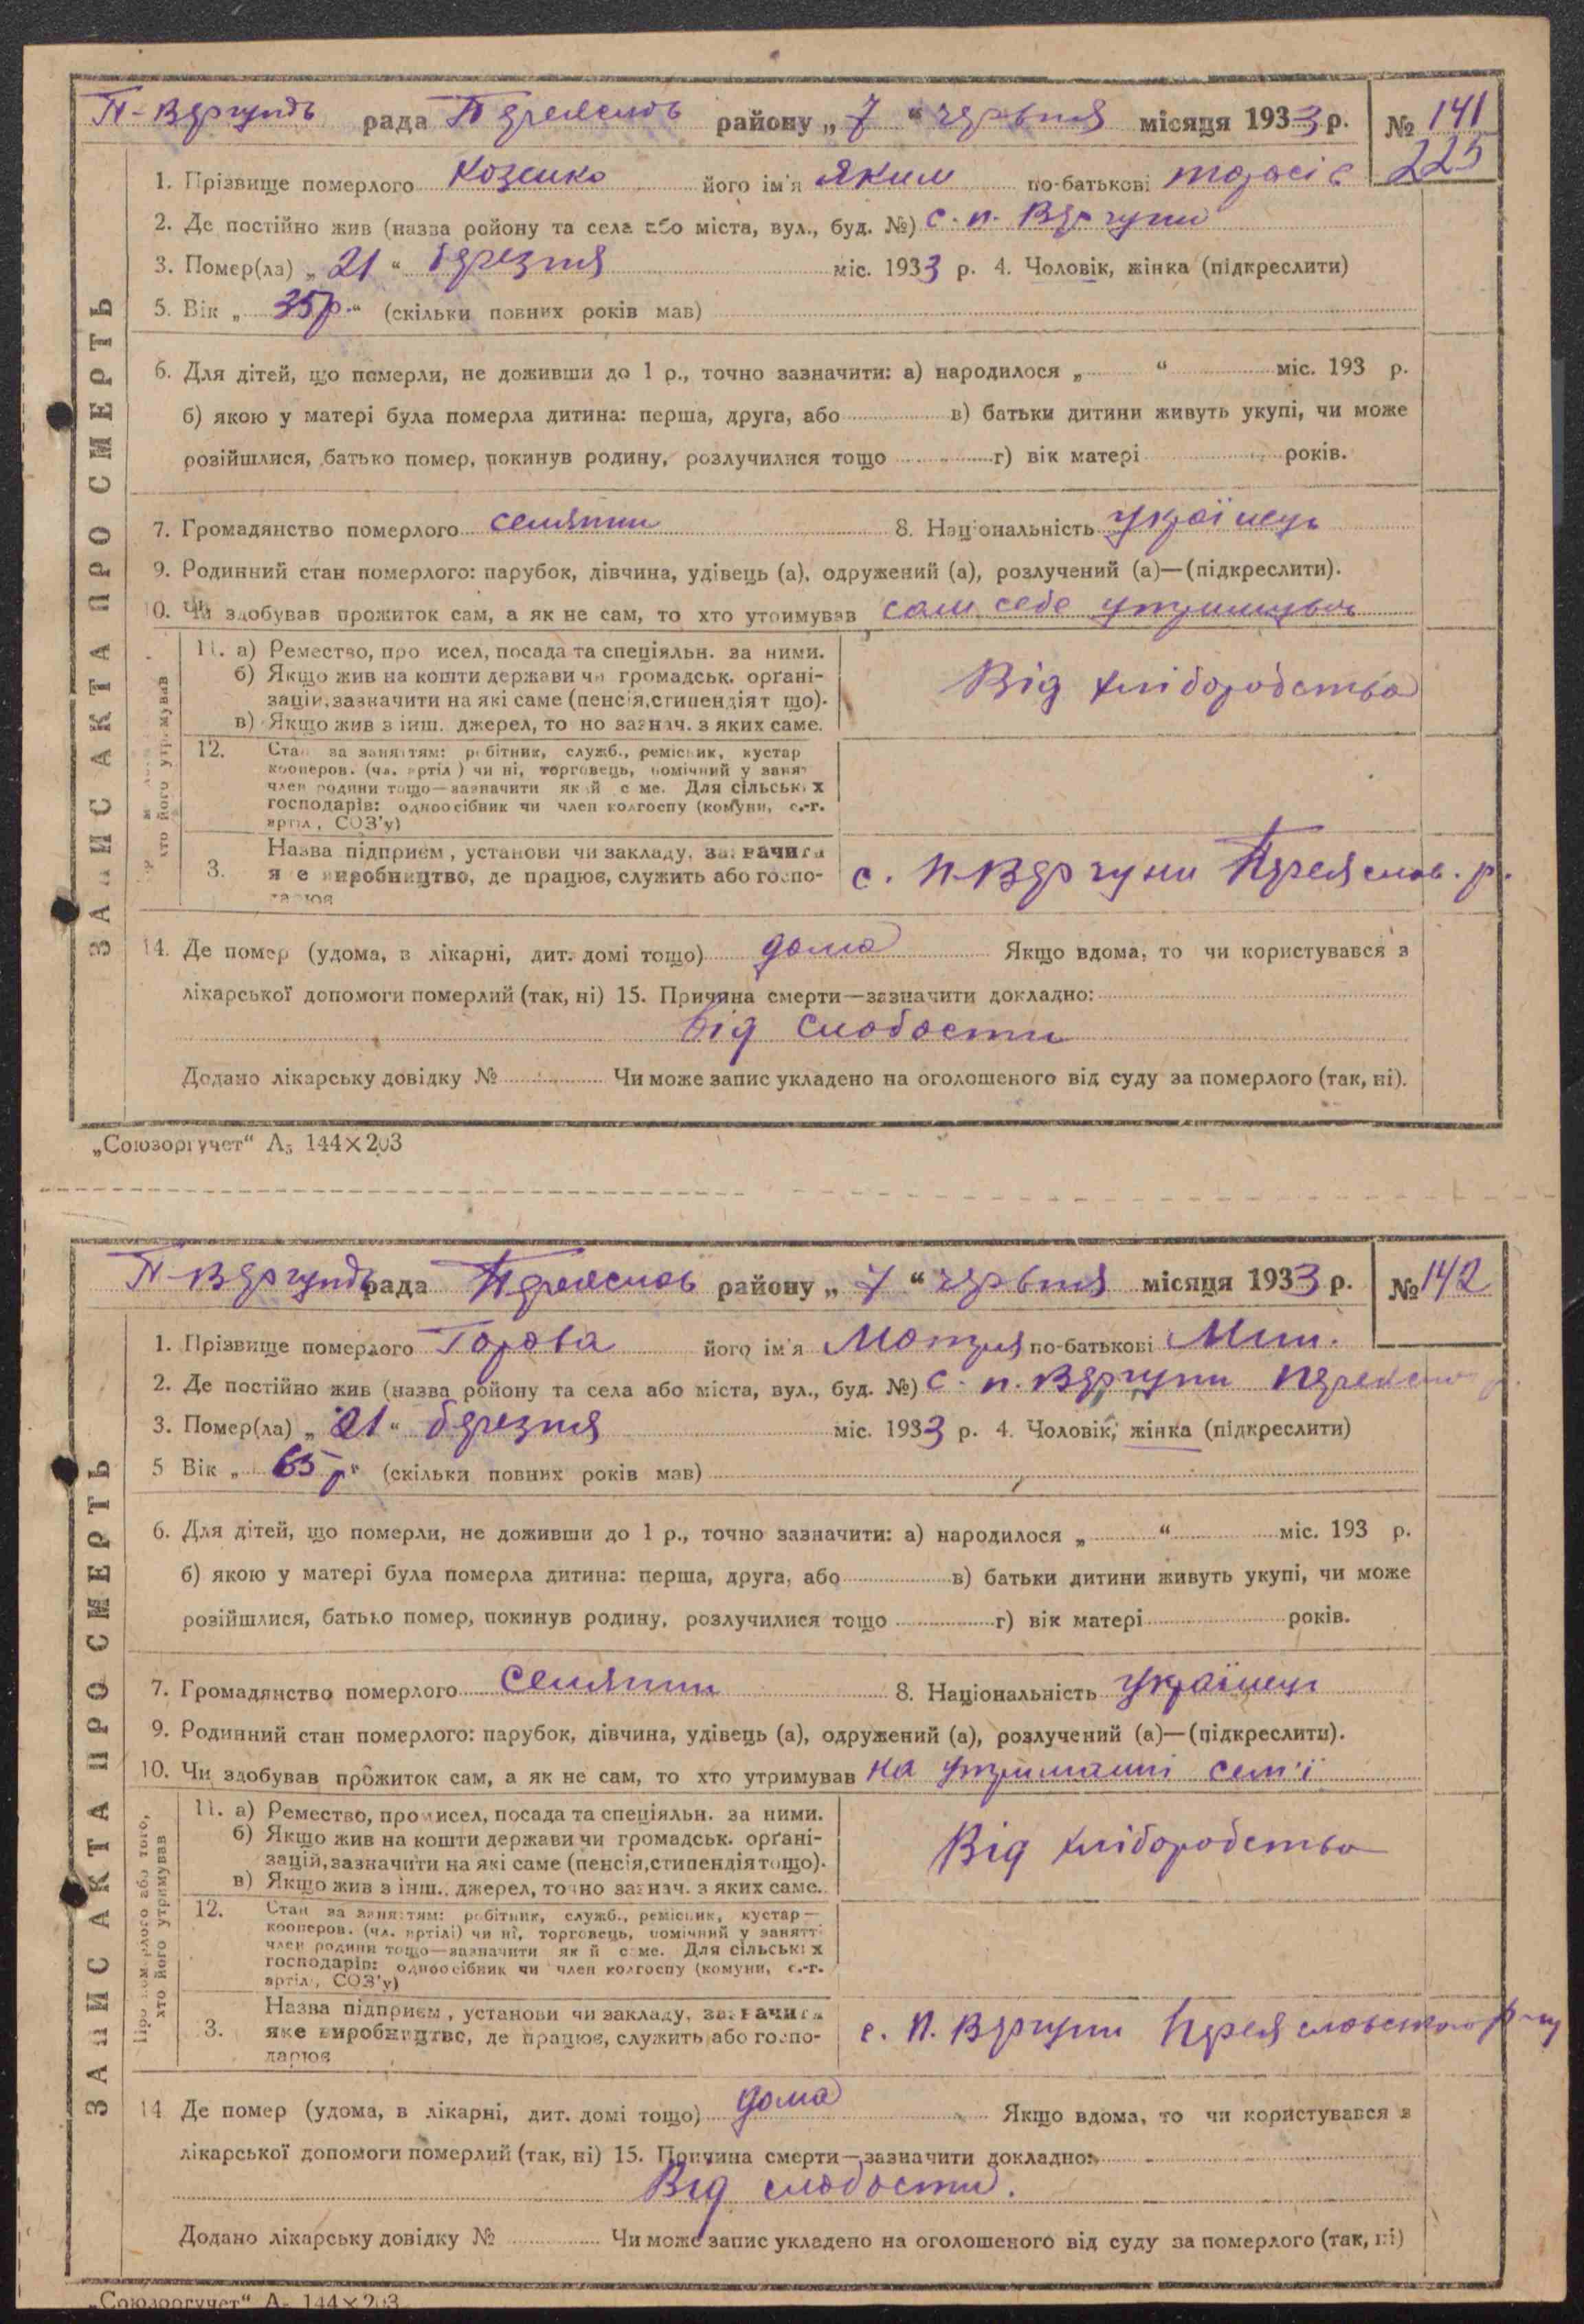 П-Вергунсь рада Переяслов району „7“ червня місяця 1933 р. № 141
225
1. Прізвище померлого Козенко його ім'я Яким по-батькові Тарасів
2. Де постійно жив (назва району та села або міста, вул., буд. №) с. п. Вергуни
3. Помер(ла) „21“ березня міс. 1933 р. 4. Чоловік, жінка (підкреслити)
5. Вік „35 р.“ (скільки повних років мав)
6. Для дітей, що померли, не доживши до 1 р., точно зазначити: а) народилося „ “ міс. 193 р.
б) якою у матері була померла дитина: перша, друга, або в) батьки дитини живуть укупі, чи може
розійшлися, батько помер, покинув родину, розлучилися тощо г) вік матері років.
7. Громадянство померлого селянин 8. Національність українець
9. Родинний стан померлого: парубок, дівчина, удівець (а), одружений (а), розлучений (а)—(підкреслити).
10. Чи здобував прожиток сам, а як не сам, то хто утримував сам себе утримував
11. а) Ремество, промисел, посада та спеціяльн. за ними.
б) Якщо жив на кошти держави чи громадськ. орґані-
зацій, зазначити на які саме (пенсія, стипендія тощо).
в) Якщо жив з інш. джерел, точно зазнач. з яких саме.
Від хліборобства
12. Стан за заняттям: робітник, служб., ремісник, кустар
кооперов. (чл. артілі) чи ні, торговець, помічний у занят
член родини тощо—зазначити який саме. Для сільських
господарів: одноосібник чи член колгоспу (комуни, с.-г.
артіл, СОЗ'у)
3. Назва підприєм, установи чи закладу, зазначити
яке виробництво, де працює, служить або госпо-
дарює
с. П-Вергуни Переяслов. р.
14. Де помер (удома, в лікарні, дит. домі тощо) дома Якщо вдома, то чи користувався з
лікарської допомоги померлий (так, ні) 15. Причина смерти—зазначити докладно:
від слабости
Додано лікарську довідку № Чи може запис укладено на оголошеного від суду за померлого (так, ні).
ЗАПИС АКТА ПРО СМЕРТЬ
„Союзоргучет“ А₅ 144×203
П-Вергунсь рада Переяслов району „7“ червня місяця 1933 р. № 142
1. Прізвище померлого Горова його ім'я Мотря по-батькові Мит.
2. Де постійно жив (назва району та села або міста, вул., буд. №) с. п. Вергуни Переяслов р.
3. Помер(ла) „21“ березня міс. 1933 р. 4. Чоловік, жінка (підкреслити)
5 Вік „65 р“ (скільки повних років мав)
6. Для дітей, що померли, не доживши до 1 р., точно зазначити: а) народилося „ “ міс. 193 р.
б) якою у матері була померла дитина: перша, друга, або в) батьки дитини живуть укупі, чи може
розійшлися, батько помер, покинув родину, розлучилися тощо г) вік матері років.
7. Громадянство померлого селянин 8. Національність українець
9. Родинний стан померлого: парубок, дівчина, удівець (а), одружений (а), розлучений (а)—(підкреслити).
10. Чи здобував прожиток сам, а як не сам, то хто утримував на утриманні сем'ї
11. а) Ремество, промисел, посада та спеціяльн. за ними.
б) Якщо жив на кошти держави чи громадськ. орґані-
зацій, зазначити на які саме (пенсія, стипендія тощо).
в) Якщо жив з інш. джерел, точно зазнач. з яких саме.
Від хліборобства
12. Стан за заняттям: робітник, служб., ремісник, кустар—
кооперов. (чл. артілі) чи ні, торговець, помічний у занятті
член родини тощо—зазначити який саме. Для сільських
господарів: одноосібник чи член колгоспу (комуни, с.-г.
артіл, СОЗ'у)
3. Назва підприєм, установи чи закладу, зазначити
яке виробництво, де працює, служить або госпо-
дарює
с. П. Вергуни Переяславського р-ну
14 Де помер (удома, в лікарні, дит. домі тощо) дома Якщо вдома, то чи користувався з
лікарської допомоги померлий (так, ні) 15. Причина смерти—зазначити докладно:
Від слабости.
Додано лікарську довідку № Чи може запис укладено на оголошеного від суду за померлого (так, ні)
ЗАПИС АКТА ПРО СМЕРТЬ
Про померлого або того,
хто його утримував
„Союзоргучет“ А₅ 144×203